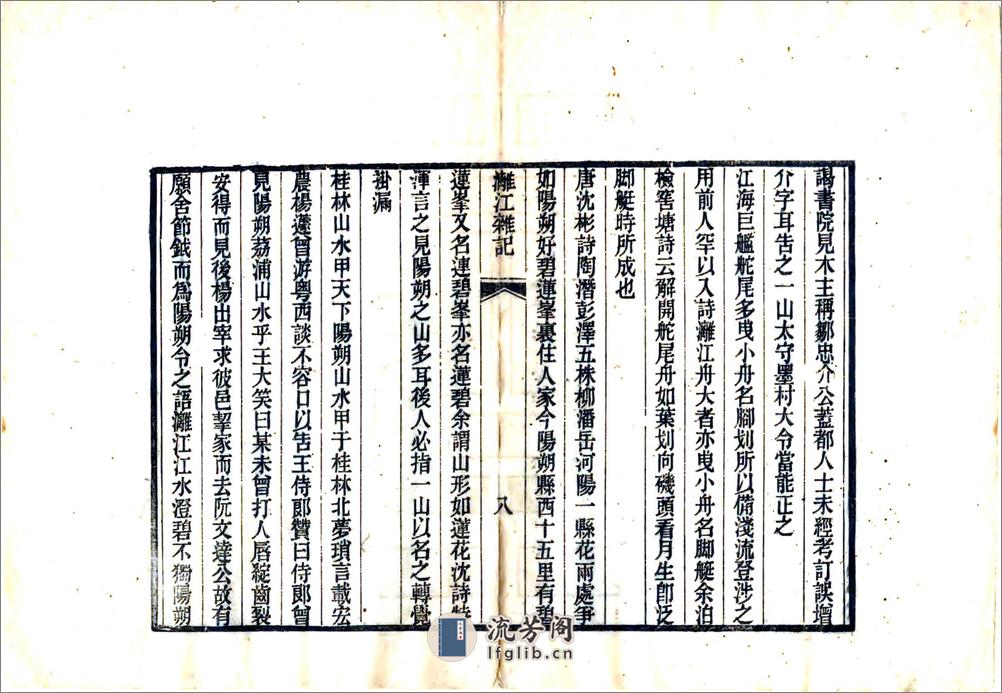 謁書院見木主稱鄒忠介公蓋都人士未經考訂誤增
介字耳告之一山太守墨村大令當能正之
江海巨艦舵尾多曳小舟名腳划所以備淺流登涉之
用前人罕以入詩灕江舟大者亦曳小舟名脚艇余泊
檢窖塘詩云解開舵尾舟如葉划向磯頭看月生卽泛
脚艇時所成也
唐沈彬詩陶潛彭澤五株柳潘岳河陽一縣花兩處爭
如陽朔好碧蓮峯裏住人家今陽朔縣西十五里有碧
灕江雜記
八
蓮峯又名連碧峯亦名蓮碧余謂山形如蓮花沈詩特
渾言之見陽朔之山多耳後人必指一山以名之轉覺
掛漏
桂林山水甲天下陽朔山水甲于桂林北夢瑣言載宏
農楊蘧曾游粤西談不容口以告王侍郞贊曰侍郞曾
見陽朔荔浦山水乎王大笑曰某未曾打人唇綻齒裂
安得而見後楊出宰求彼邑挈家而去阮文達公故有
願舍節鉞而爲陽朔令之語灕江江水澄碧不獨陽朔
流芳阁
lfglib.cn